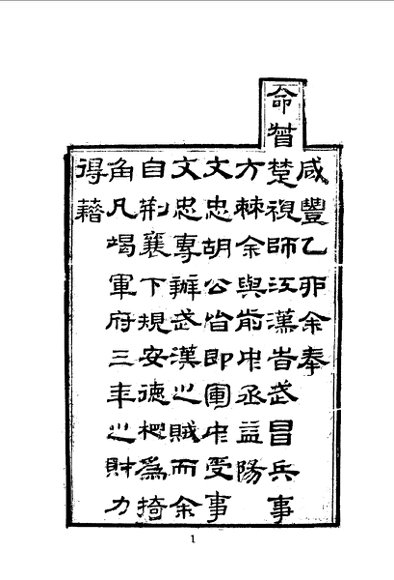 咸豐乙卯余奉
命督楚視師江漢旹武昌兵事
方棘余與前中丞益陽
文忠胡公皆即軍中受事
文忠專辦武漢之賊而余
自荊襄下規安德為掎
角凡竭軍府三年之財力
得藉
1